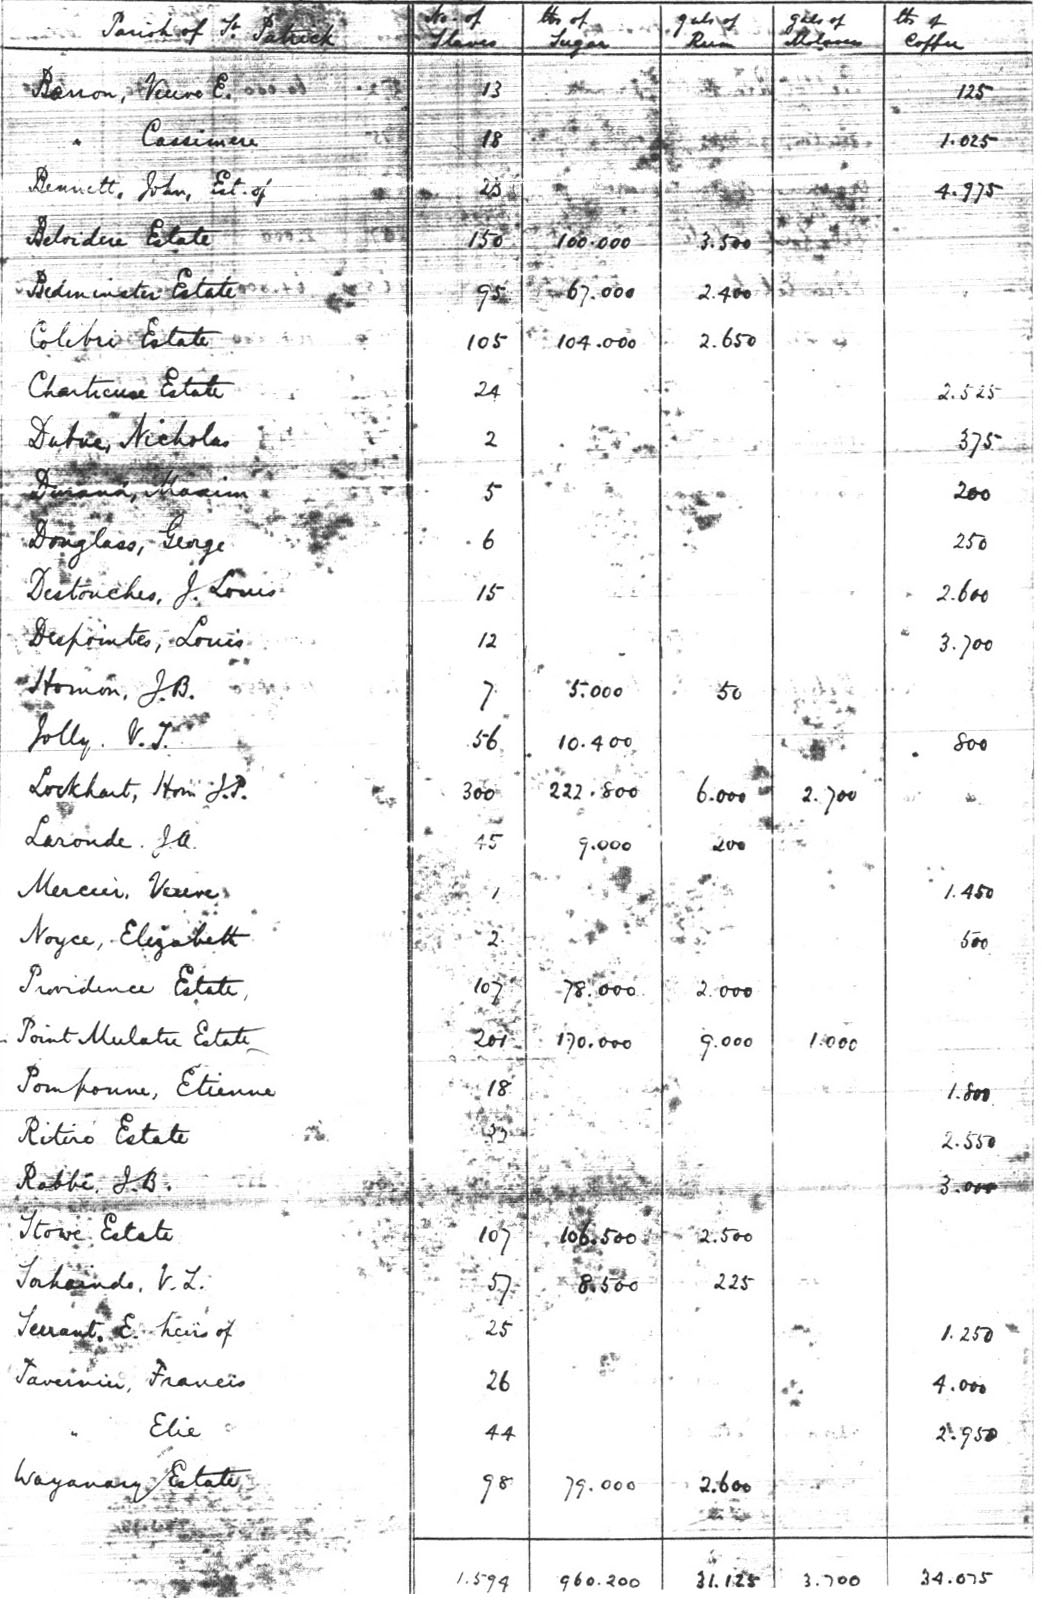 Parish of St. Patrick No. of Slaves lbs of Sugar gals of Rum gals of Molasses lbs of Coffee
Barron, Veuve E. 13 125
" Cassimere 18 1.025
Bennett, John, Est. of 25 4.975
Belvidere Estate 150 100.000 3.500
Bedminster Estate 95 67.000 2.400
Colibri Estate 105 104.000 2.650
Chartreuse Estate 24 2.525
Dubuc, Nicholas 2 375
Durand, Maxim 5 200
Douglass, George 6 250
Destouches, J. Louis 15 2.600
Despointes, Louis 12 3.700
J.B. 7 5.000 50
Jolly. V.J. 56 10.400 800
Lockhart, Hon J.P. 300 222.800 6.000 2.700
Laronde. J.A. 45 9.000 200
Mercier, Veuve 1 1.450
Noyce, Elizabeth 2 500
Providence Estate, 107 78.000 2.000
Point Mulatre Estate 201 170.000 9.000 1.000
Pomponne, Etienne 18 1.800
Ritiro Estate 2.550
Rabbé, J.B. 3.000
Stowe Estate 107 106.500 2.500
Sorhaindo, V.L. 57 8.500 225
Serrant, E. heirs of 25 1.250
Tavernier, Francis 26 4.000
" Elie 44 2.950
Wayanary Estate 98 79.000 2.600
1.594 960.200 31.125 3.700 34.075